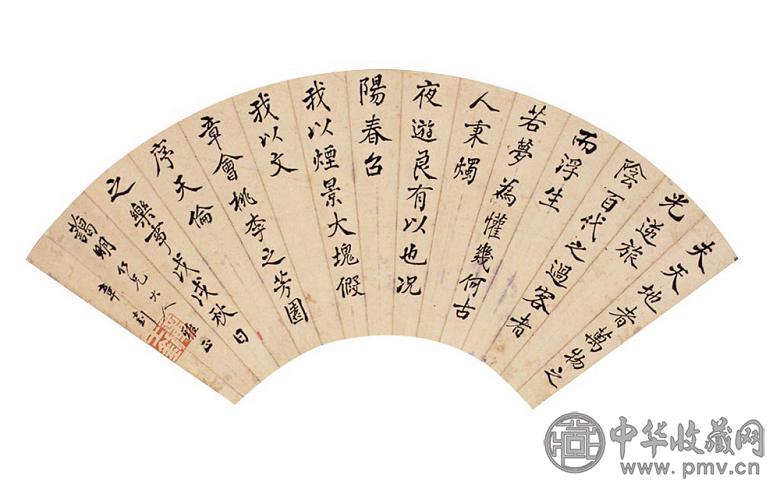 夫天地者萬物之
光逆旅
陰百代之過客者
而浮生
若夢為懽幾何古
人秉燭
夜遊良有以也况
陽春召
我以煙景大塊假
我以文
章會桃李之芳園
序天倫
之樂事戊戌秋日
藹明仁兄大人雅正
章
中华收藏网
www.pmv.cn